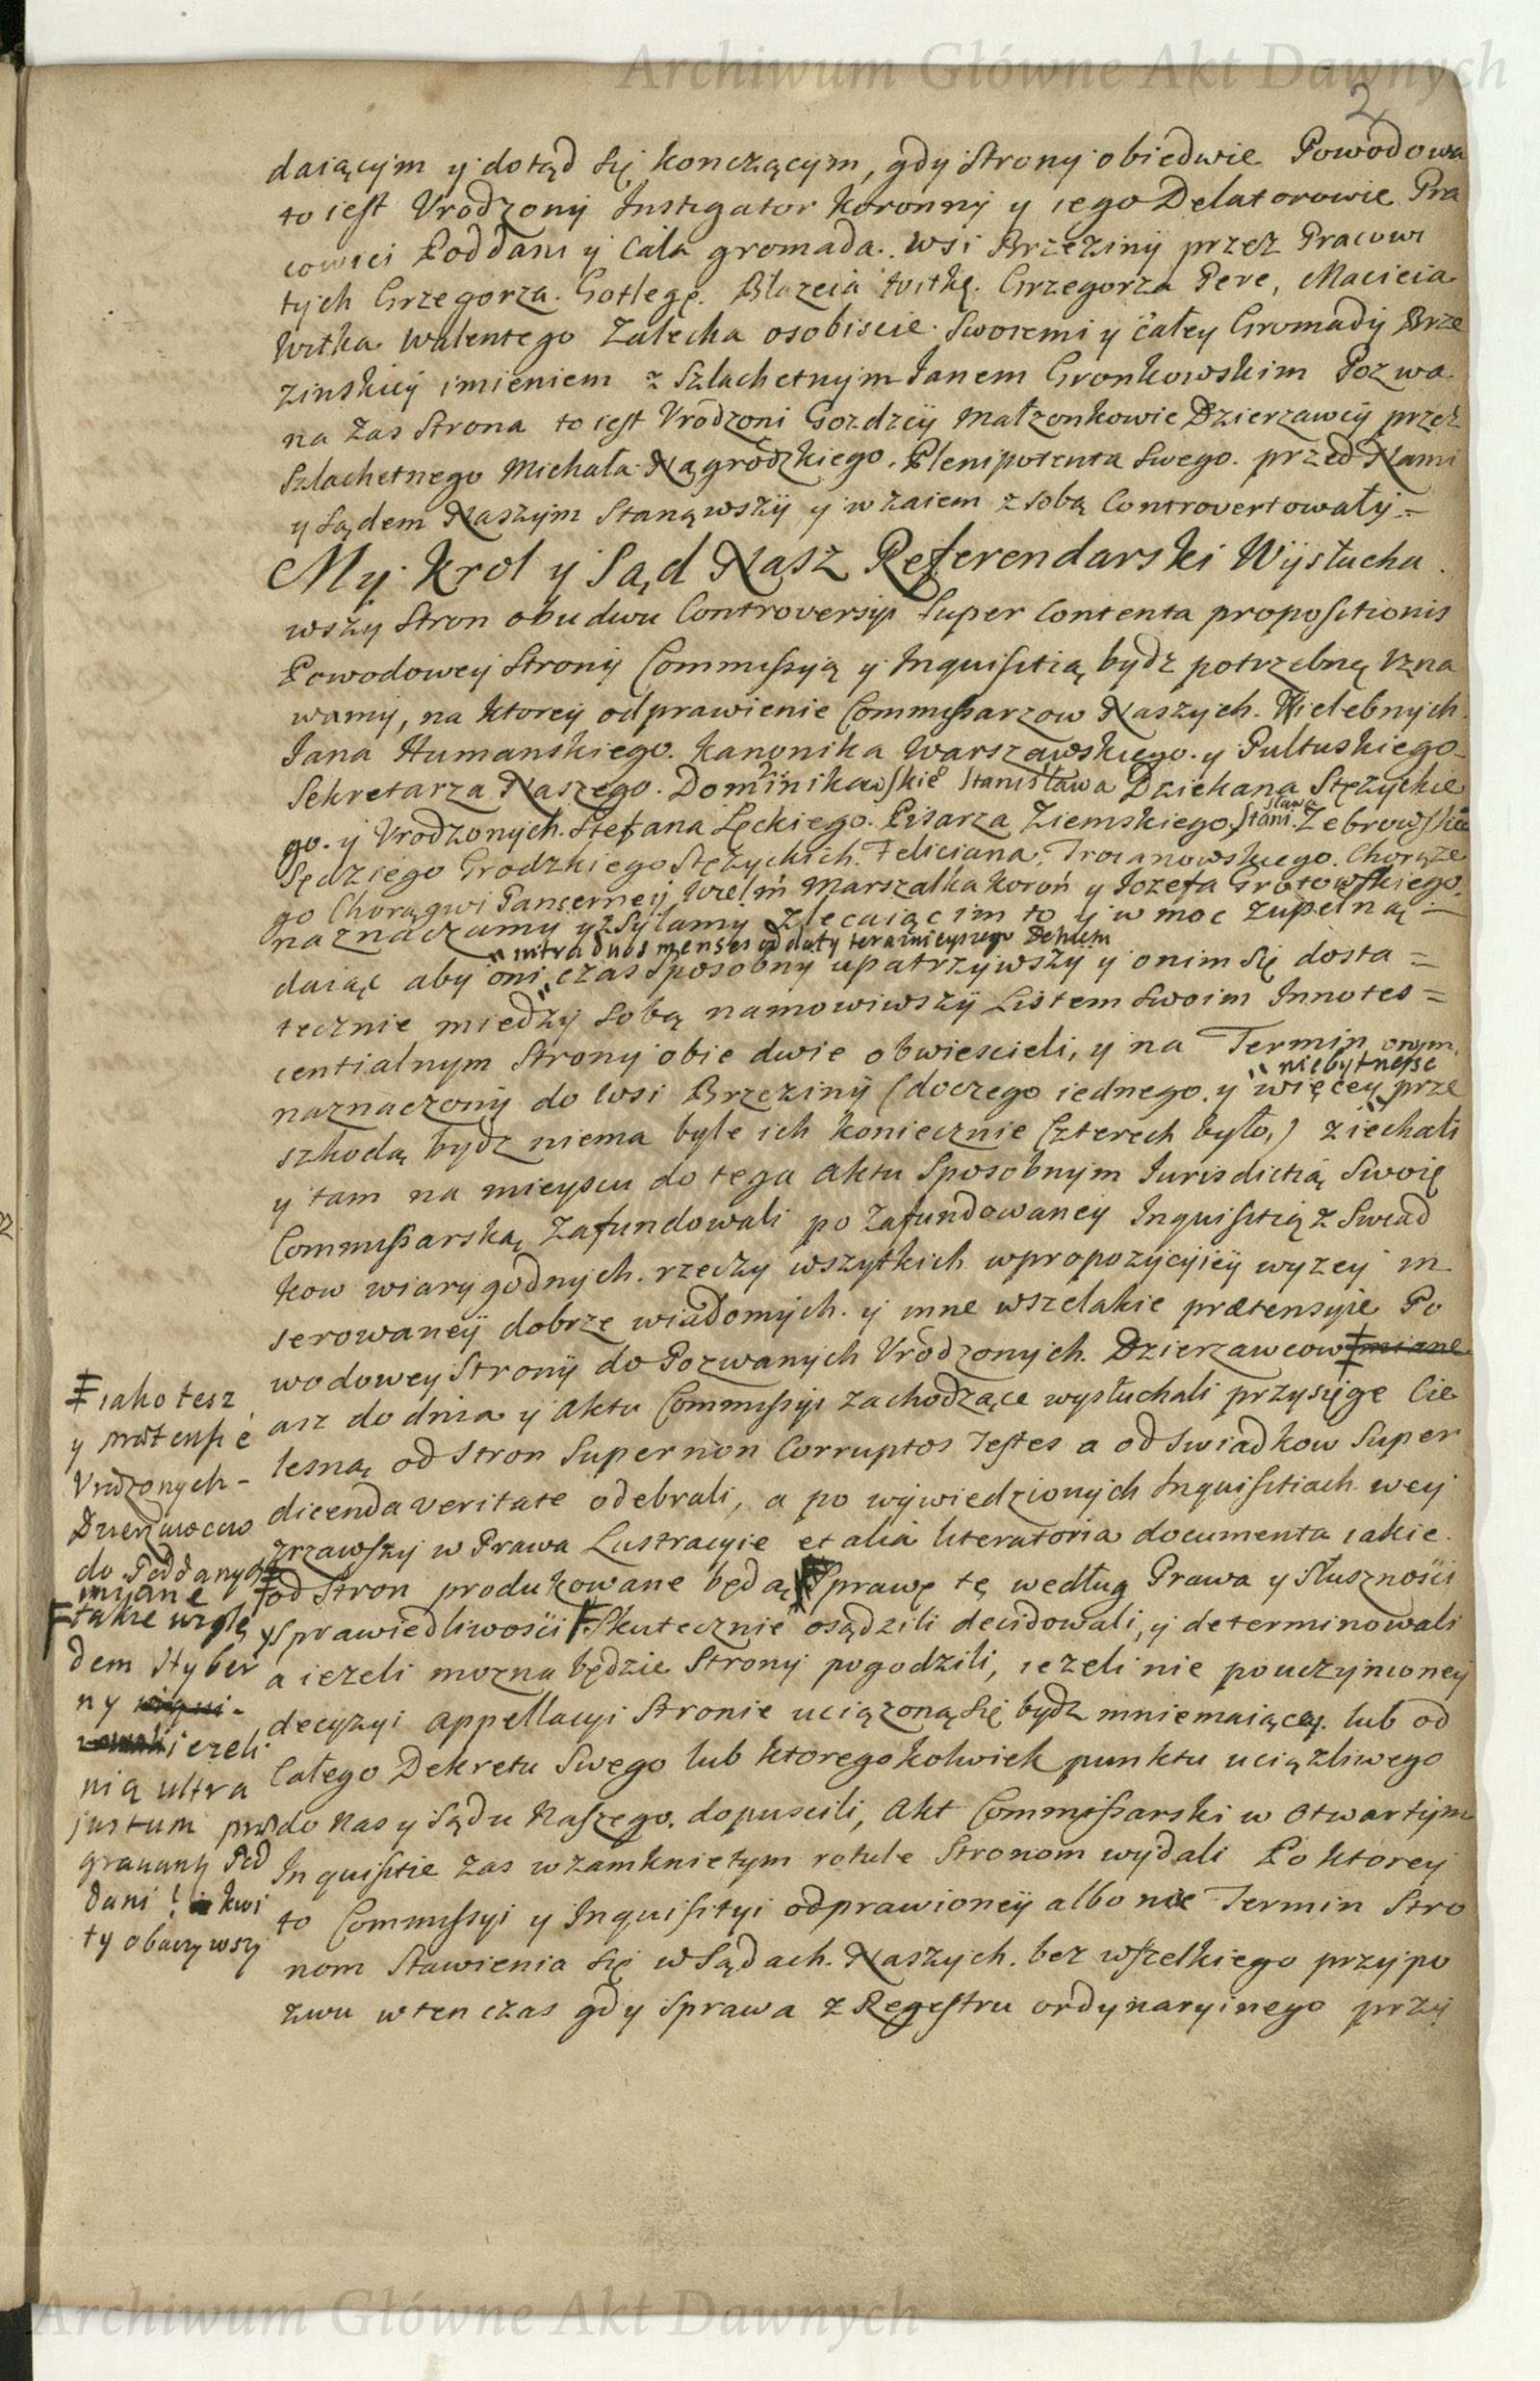 Archiwum Główne Akt Dawnych
2
daiącym y dotąd się konczącym, gdy strony obiedwie Powodowa
to iest Vrodzony Instigator koronny y iego Delatorowie Pra
cowici Poddani y Cała gromada wsi Brzeziny przez Pracowi
tych Grzegorza Gotlegę. Błazeia Witkę. Grzegorza Pere, Macieia
Witka Walentego Zalecka osobiscie swoiemi y całey Gromady Brze
zinskiey imieniem z Szlachetnym Janem Gronkowskim Pozwa
na Zas Strona to iest Vrodzoni Gozdzcy Małzonkowie Dzierzawcy przez
Szlachetnego Michała Nagrodzkiego. Plenipotenta Swego. przed Nami
y Sądem Naszym Stanąwszy y wzaiem z sobą Controvertowały =
My Krol y Sąd Nasz Referendarski Wysłucha
wszy Stron obudwu Controversyi super Contenta propositionis
Powodowey Strony Commissyią y Inquisitią bydz potrzebną Vzna
wamy, na ktorey odprawienie Commissarzow Naszych. Wielebnych
Jana Humanskiego. Kanonika Warszawskiego. y Pultuskiego
Sekretarza Naszego. Dominikowskie Stanisława Dziekana Stęzyckie
go. y Vrodzonych. Stefana Lęckiego. Pisarza Ziemskiego, Stanisława Zebrowskie
Sędziego Grodzkiego Stęzyckich. Feliciana. Troianowskiego. Chorąze
go Chorągwi Pancerney Wielm Marszałka Koroń y Jozefa Grotowskiego
naznaczamy y zsyłamy Zlecaiąc im to y w moc zupełną =
" intra duos menses a daty teraznieyszego Dekretu
daiąc aby oni czas sposobny upatrzywszy y onim się dosta =
tecznie między sobą namowiwszy Listem swoim Innotes =
centialnym strony obie dwie obwiescieli, y na Termin onym
" niebytnosc
naznaczony do wsi Brzeziny (doczego iednego. y więcey prze
szkodą bydz niema byle ich koniecznie Czterech było,) ziechali
y tam na mieyscu do tego aktu sposobnym Jurisdictią Swoię
Commissarską Zafundowali po Zafundowaney Inquisitią z Swiad
kow wiary godnych. rzeczy wszytkich wpropozycyiey wyzey in
serowaney dobrze wiadomych. y inne wszelakie prætensyie Po
wodowey Strony do Pozwanych Vrodzonych. Dzierzawcow ‡ miane
asz do dnia y aktu Commissyi zachodzące wysłuchali przysięgę Cie
lesną od Stron Super non Corruptos Testes a od swiadkow Super
dicenda veritate odebrali, a po wywiedzionych Inquisitiach wey
zrzawszy w Prawa Lustracyie et alia literatoria documenta iakie
od Stron produkowane będą Sprawę tę według Prawa y Słusznosci
y Sprawiedliwosci F Skutecznie osądzili decidowali, y determinowali
a iezeli mozna będzie Strony pogodzili, iezeli nie pouczynioney
decyzyi appellacyi Stronie uciązoną się bydz mniemaiącey. lub od
Całego Dekretu Swego lub ktoregokolwiek punktu uciązliwego
do Nas y Sądu Naszego. dopuscili, Akt Commissarski w Otwartym
Inquisitie zas w zamknietym rotule Stronom wydali Po ktorey
to Commissyi y Inquisityi odprawioney albo nie Termin Stro
nom Stawienia się w Sądach. Naszych. bez wszelkiego przypo
zwu wten czas gdy Sprawa z Regestru ordynaryinego przy
‡ iako tesz
y prætensie
Vrodzonych -
Dzierzawcow
do Poddanych
miane
F takze wzglę
dem Hyber
ny
iezeli
nią ultra
justum præ
gravanty Pod
dani ! kwi
ty obaczywszy
Archiwum Główne Akt Dawnych